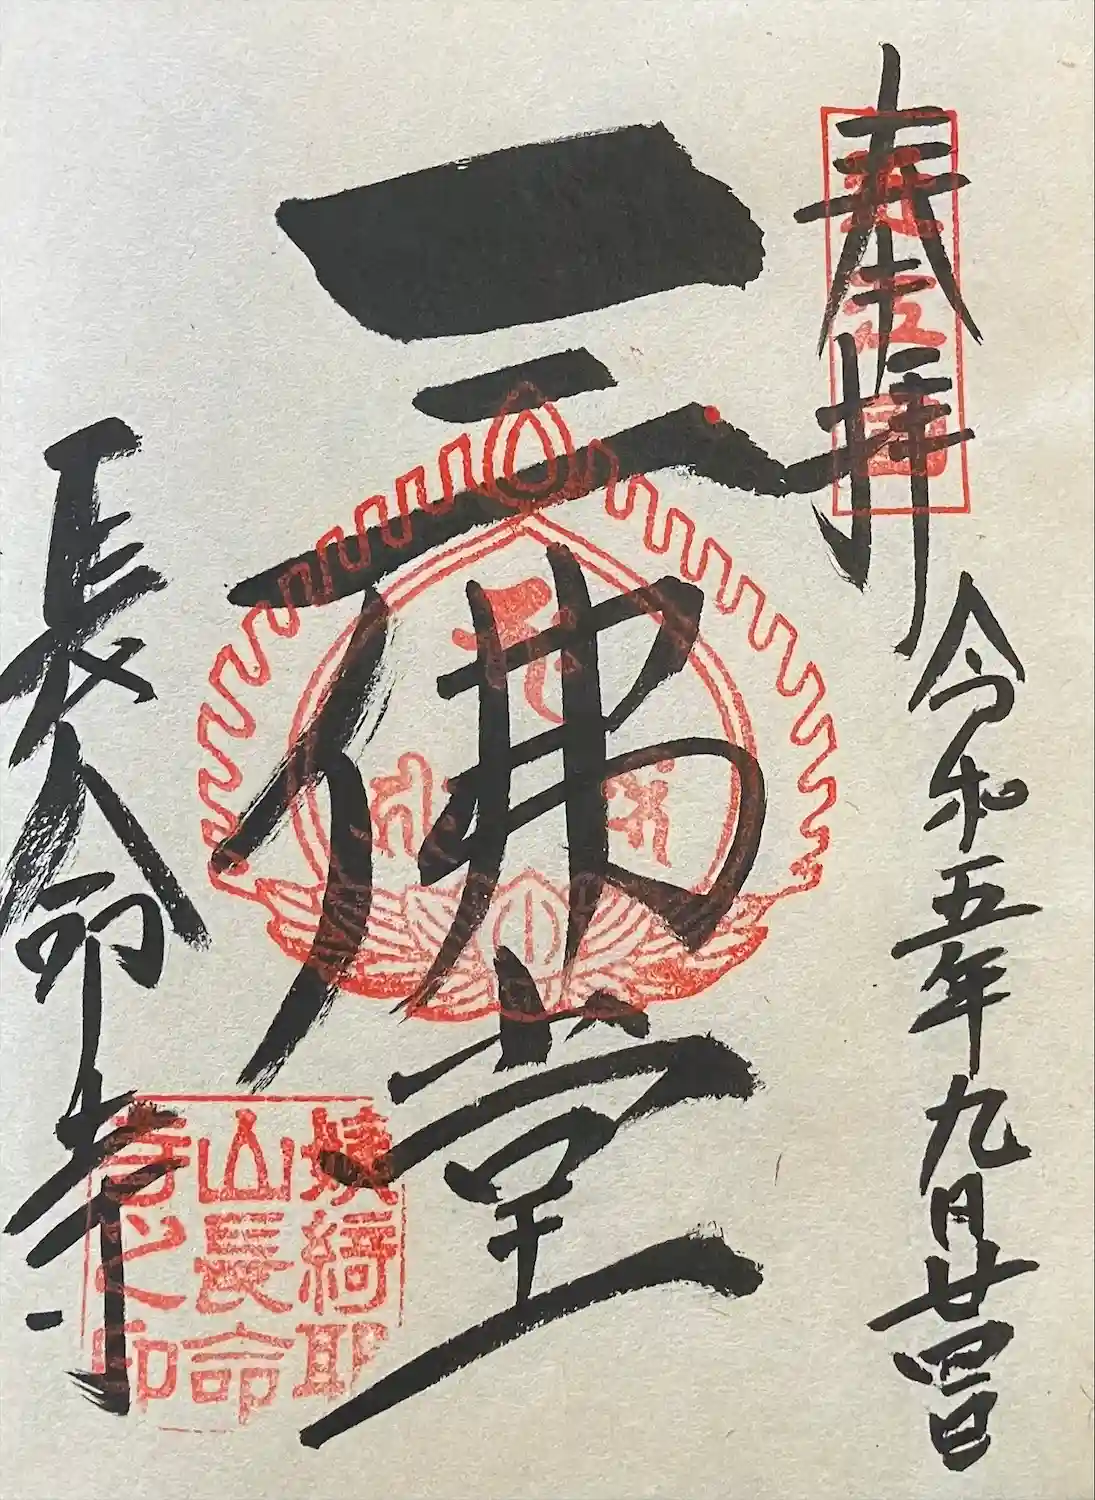 奉拝
近江国
令和五年九月廿四日
三佛堂
長命寺
姨綺耶
山長命
寺之印